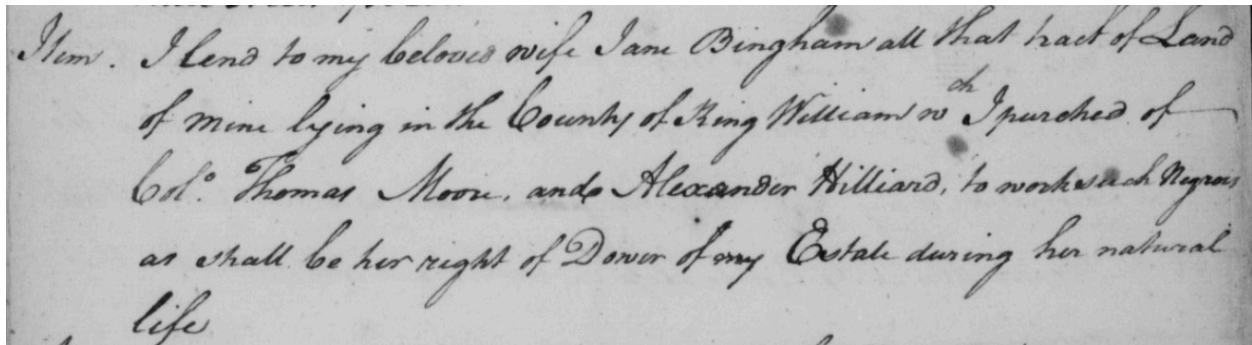 Item. I lend to my beloved wife Jane Bingham all that tract of Land
of mine lying in the County of King William wch I purched of
Colo. Thomas Moore, and Alexander Hilliard, to work such Negroes
as shall be her right of Dower of my Estate during her natural
life